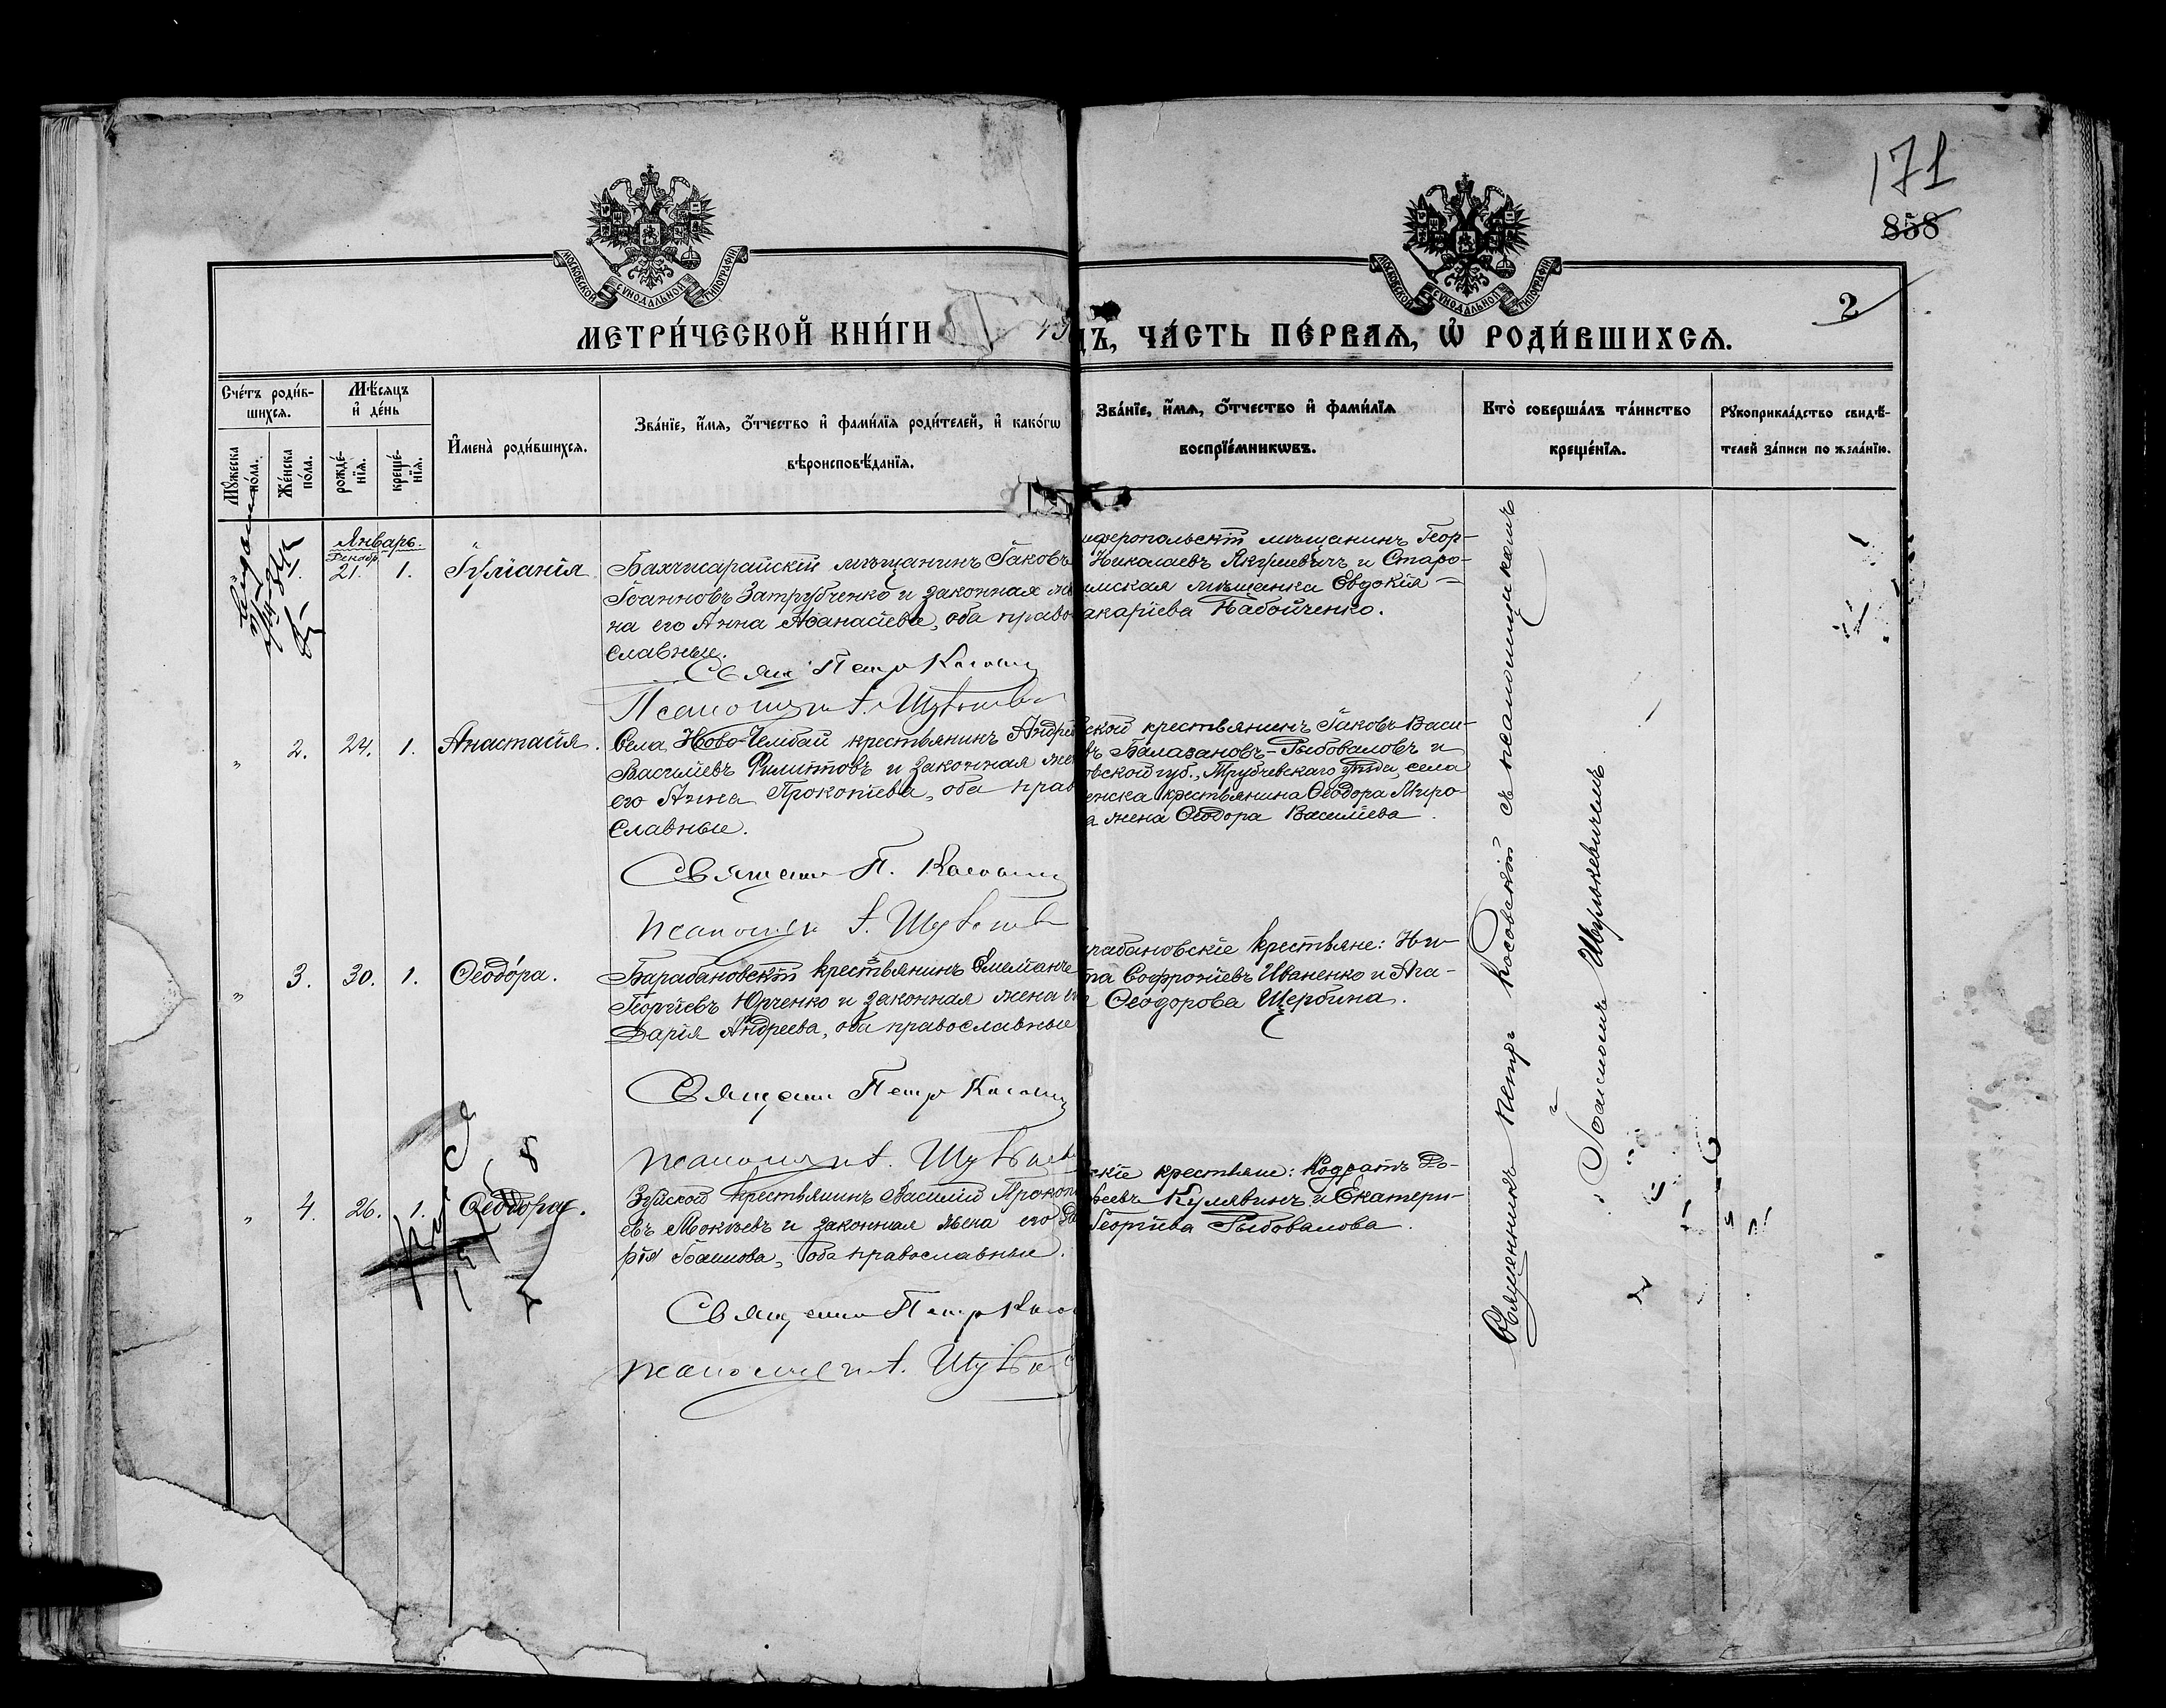 171
858
2
МОСКОВСКОЙ СУНОДАЛЬНОЙ ТИПОГРАФІИ
МОСКОВСКОЙ СУНОДАЛЬНОЙ ТИПОГРАФІИ
МЕТРИ́ЧЕСКОЙ КНИ́ГИ
ДЪ, ЧА́СТЬ ПЕ́РВАѦ, Ѡ҆ РОДИ́ВШИХСѦ.
Сче́тъ роди́в-
шихсѧ.
Мꙋ́жеска
по́ла.
Же́нска
по́ла.
Мѣ́сѧцъ
и҆ де́нь
рожде́-
нїѧ.
креще́-
нїѧ.
И҆мена̀ роди́вшихсѧ.
Зва́нїе, и҆́мѧ, ѻ҆́тчество и҆ фами́лїѧ роди́телей, и҆ како́гѡ
вѣроисповѣ́данїѧ.
Зва́нїе, и҆́мѧ, ѻ҆́тчество и҆ фами́лїѧ
воспрїе́мникѡвъ.
Кто̀ соверша́лъ та́инство
креще́нїѧ.
Рꙋкоприкла́дство свидѣ́-
телей за́писи по жела́нїю.
Январь.
Декабр.
21. 1. Іуліанія
Бахчисарайскій мѣщанинъ Іаковъ
Іоанновъ Затрубченко и законная же
на его Анна Аѳанасіева, оба право
славные.
Свящ Петръ Косовск
Псаломщик І. Шуб
иферопольскій мѣщанинъ Геор-
Николаевъ Якушевичъ и Старо-
ымская мѣщанка Евдокія
акаріева Набойченко.
" 2. 24. 1. Анастасія.
Села Ново-Челбай крестьянинъ Андрей
Василіевъ Филиповъ и законная жен
его Анна Прокопіева, оба прав
славные.
Священ П. Косовск
псаломщ І. Шуб
ской крестьянинъ Іаковъ Васи-
въ Балабановъ-Рыбоваловъ и
овской губ., Трубчевскаго уѣзда, села
енска крестьянина Ѳеодора Миро-
а жена Ѳеодора Василіева.
" 3. 30. 1. Ѳеодо́ра.
Барабановскій крестьянинъ Емеліанъ Ге
оргіевъ Юрченко и законная жена ег
Дарія Андреева, оба православные
Священ Петръ Косовск
псаломщ І. Шуб
рабановскіе крестьяне: Ни-
та Софроніевъ Иваненко и Ага-
Ѳеодорова Щербина.
" 4. 26. 1. Ѳеодора.
Зуйской крестьянинъ Василій Прокопі
евъ Мокѣевъ и законная жена его Да
рія Іоаннова, оба православные.
Священ Петръ Косов
псаломщ І. Шуб
скіе крестьяне: Кодратъ До-
ѳеевъ Кулявинъ и Екатери-
Георгіева Рыбовалова.
Священникъ Петръ Косовскій съ псаломщикомъ
Іоанномъ Шуркевичемъ